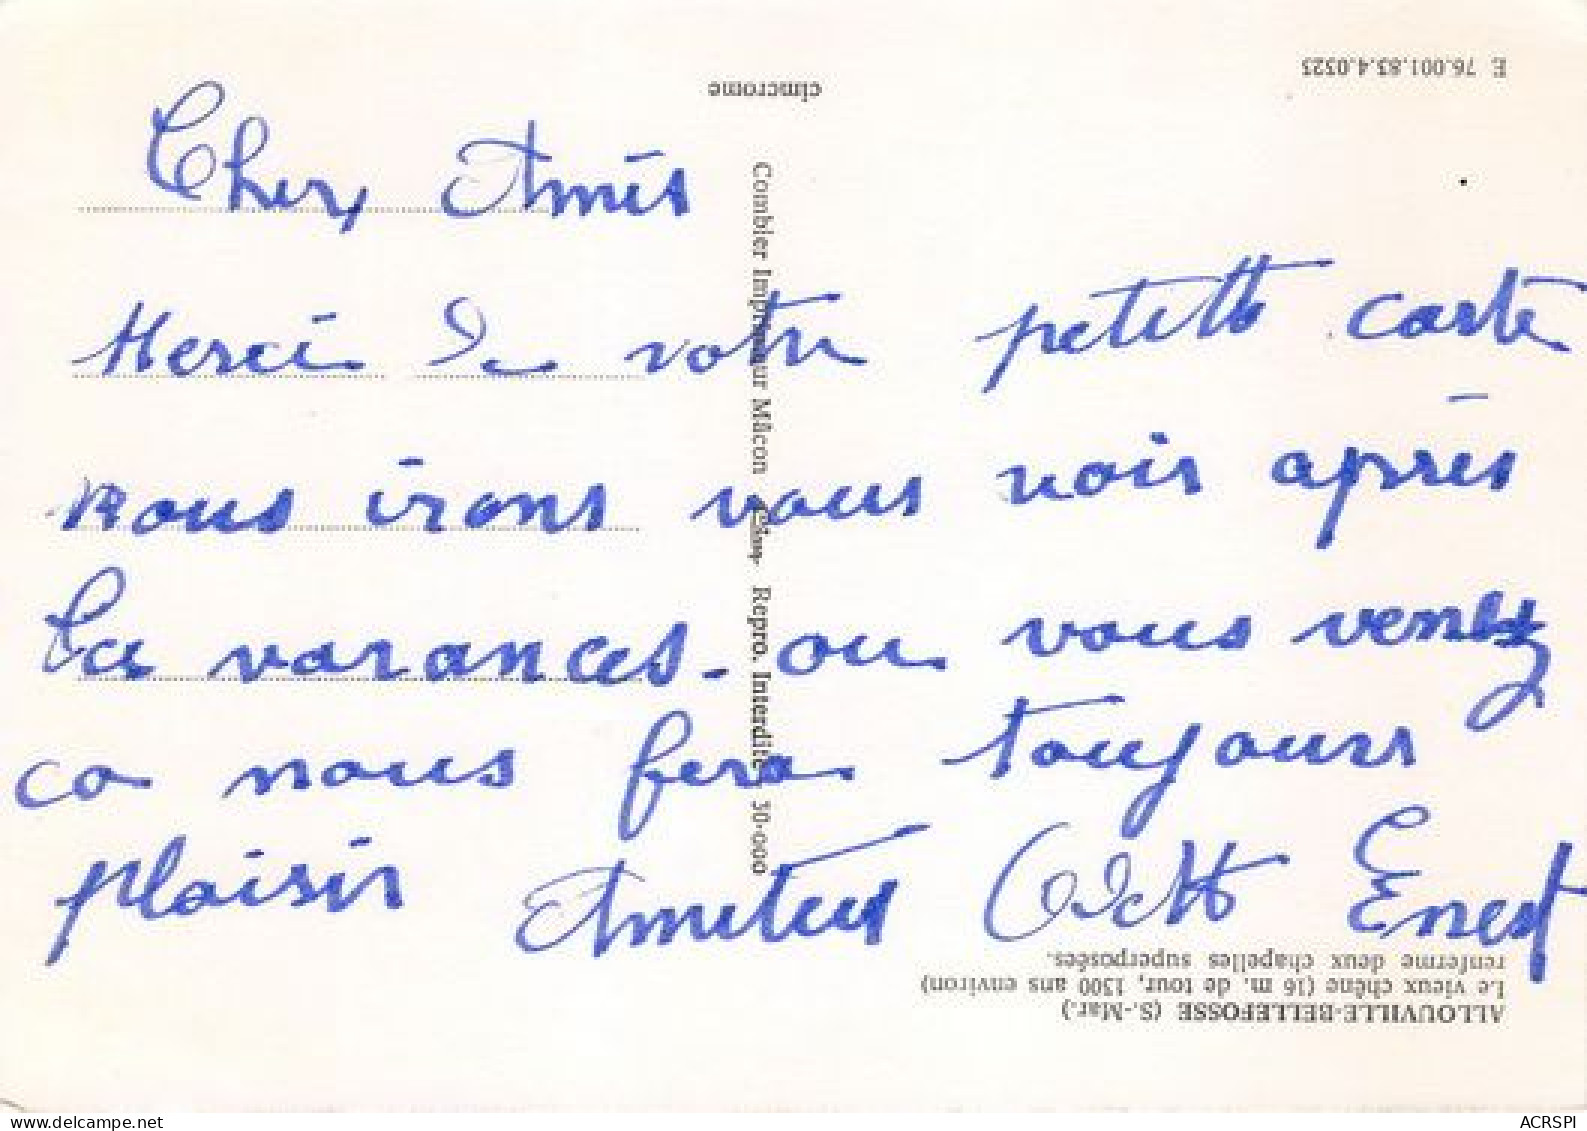 Chers Amis
Merci de votre petite carte
nous irons vous voir après
les vacances - ou vous venez
ca nous fera toujours
plaisir Amitiés Odette Ernest
E 76.001.83.4.0323
cimcrome
Combier Imprimeur Mâcon Repro. Interdite 30.000
ALLOUVILLE-BELLEFOSSE (S.-Mar.)
Le vieux chêne (16 m. de tour, 1300 ans environ)
renferme deux chapelles superposées.
www.delcampe.net
ACRSPI